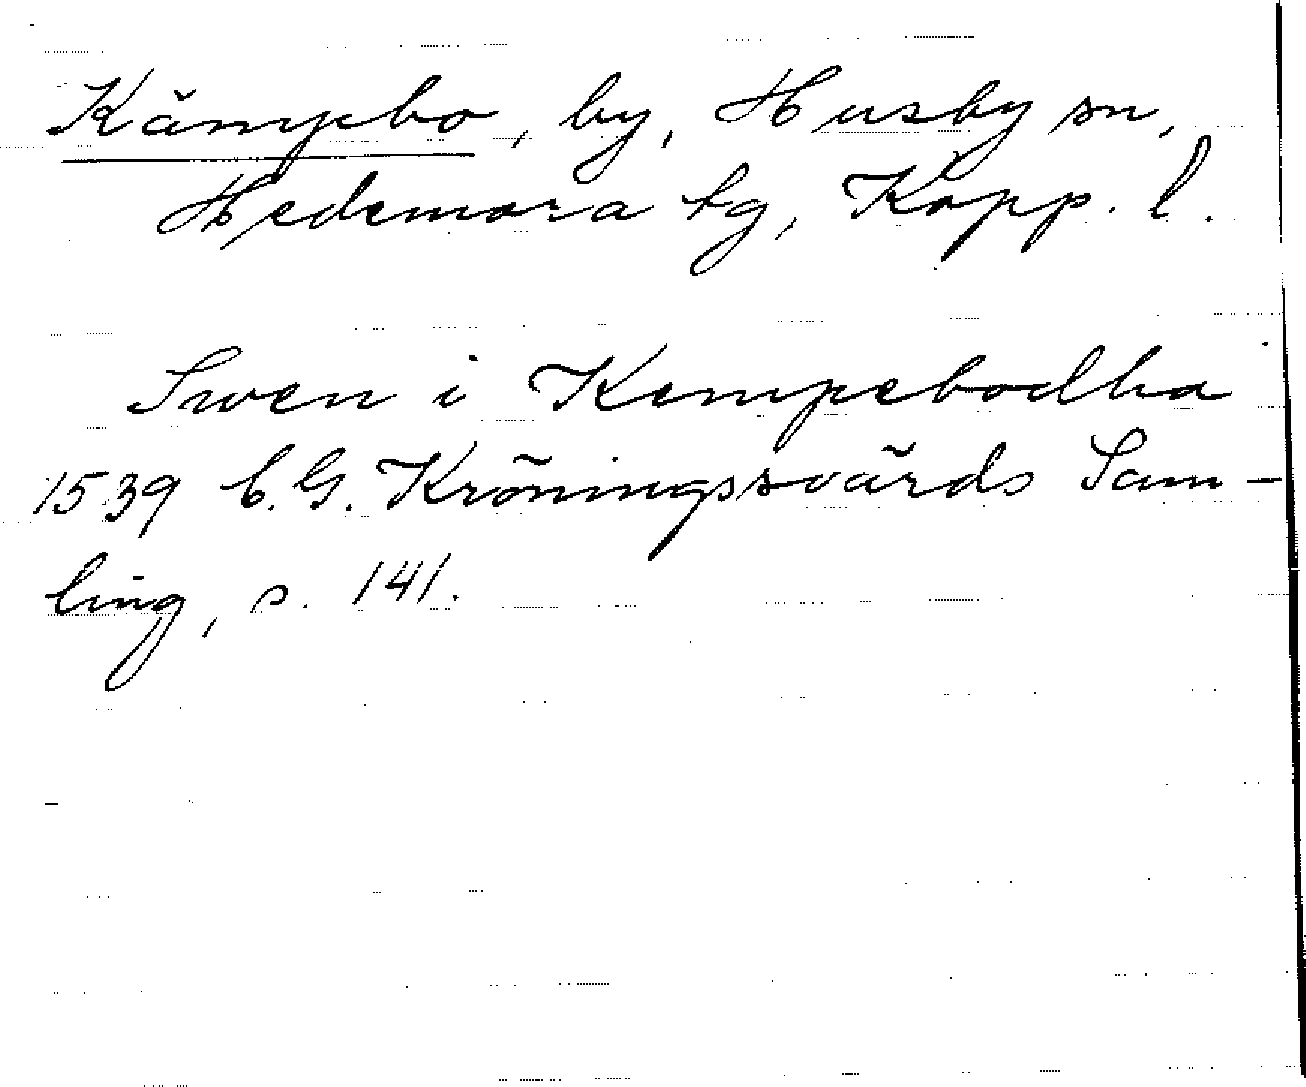 Kämpebo, by, Husby sn,
Hedemora tg, Kopp. l.
Swen i Kempebodha
1539 C.G. Kröningssvärds Sam-
ling, s. 141.